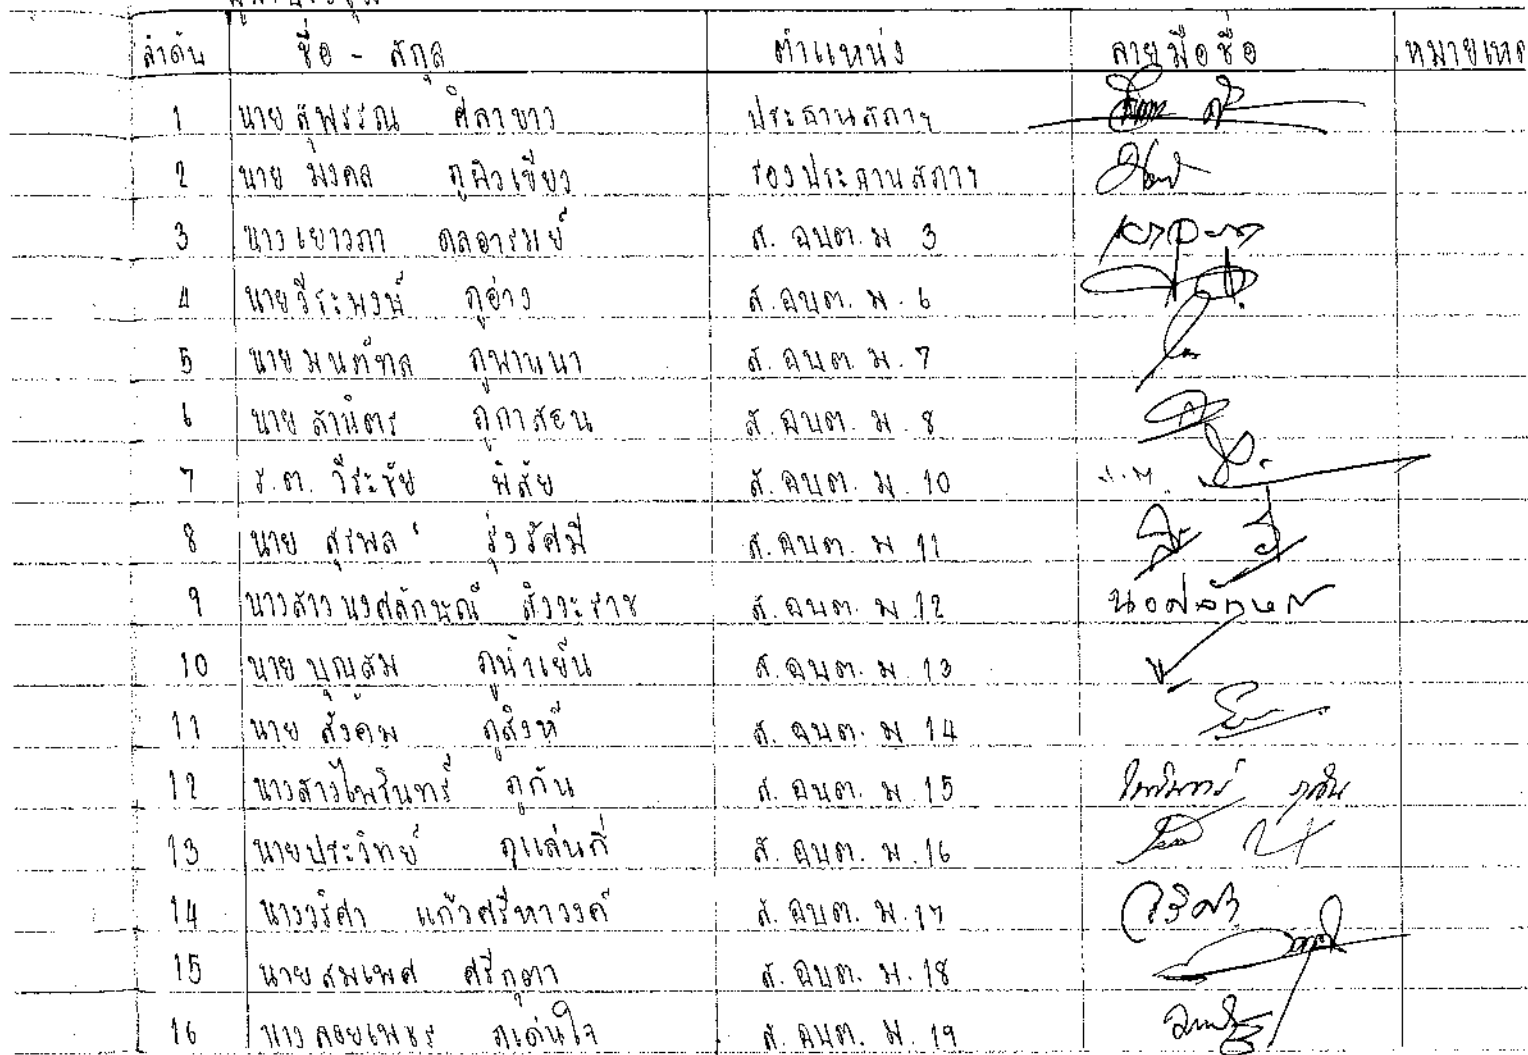 ลำดับ ชื่อ - สกุล ตำแหน่ง ลายมือชื่อ หมายเหตุ
1 นายสุพรรณ ศิลาขาว ประธานสภาฯ
2 นาย มงคล ภูผิวเขียว รองประธานสภาฯ
3 นางเยาวภา ดลอารมย์ ส. อบต. ม 3
4 นายวีระพงษ์ ภูอ่าง ส. อบต. ม. 6
5 นายมนต์ทล ภูพานนา ส. อบต. ม. 7
6 นาย สานิตร ภูกาสอน ส. อบต. ม. 8
7 ร.ต. วีระชัย พิสัย ส. อบต. ม. 10
8 นาย สุรพล รุ่งรัศมี ส. อบต. ม 11
9 นางสาวนงศลักษณ์ สังวะราช ส. อบต. ม. 12 นงศลักษณ์
10 นาย บุญสม ภูน้ำเย็น ส. อบต. ม. 13
11 นาย สังคม ภูสิงห์ ส. อบต. ม 14
12 นางสาวไพรินทร์ ภูกัน ส. อบต. ม. 15 ไพรินทร์ ภูกัน
13 นายประวิทย์ ภูแล่นกี่ ส. อบต. ม. 16
14 นางวริศา แก้วศรีหาวงศ์ ส. อบต. ม. 17 วริศา
15 นายสมเพศ ศรีกุตา ส. อบต. ม. 18
16 นางลอยเพชร ภูเด่นใจ ส. อบต. ม. 19